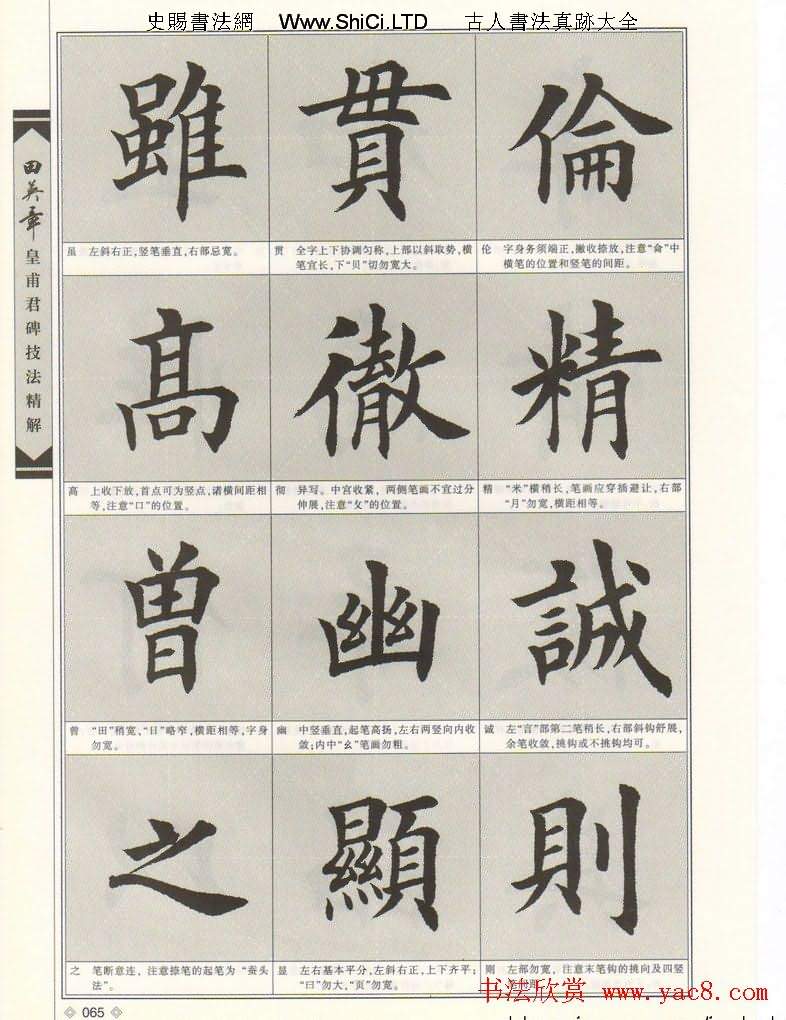 史賜書法網 www.ShiCi.LTD 古人書法真跡大全
田英章
皇甫君碑技法精解
雖
貫
倫
虽 左斜右正,竖笔垂直,右部忌宽。
贯 全字上下协调匀称,上部以斜取势,横
笔宜长,下“贝”切勿宽大。
伦 字身务须端正,撇收捺放,注意“侖”中
横笔的位置和竖笔的间距。
高
徹
精
高 上收下放,首点可为竖点,诸横间距相
等,注意“口”的位置。
彻 异写。中宫收紧,两侧笔画不宜过分
伸展,注意“攵”的位置。
精 “米”横稍长,笔画应穿插避让,右部
“月”勿宽,横距相等。
曾
幽
誠
曾 “田”稍宽,“日”略窄,横距相等,字身
勿宽。
幽 中竖垂直,起笔高扬,左右两竖向内收
敛;内中“幺”笔画勿粗。
诚 左“言”部第二笔稍长,右部斜钩舒展,
余笔收敛,挑钩或不挑钩均可。
之
顯
則
之 笔断意连,注意捺笔的起笔为“蚕头
法”。
显 左右基本平分,左斜右正,上下齐平;
“曰”勿大,“页”勿宽。
则 左部勿宽,注意末笔钩的挑向及四竖
书法欣赏 www.yac8.com
065